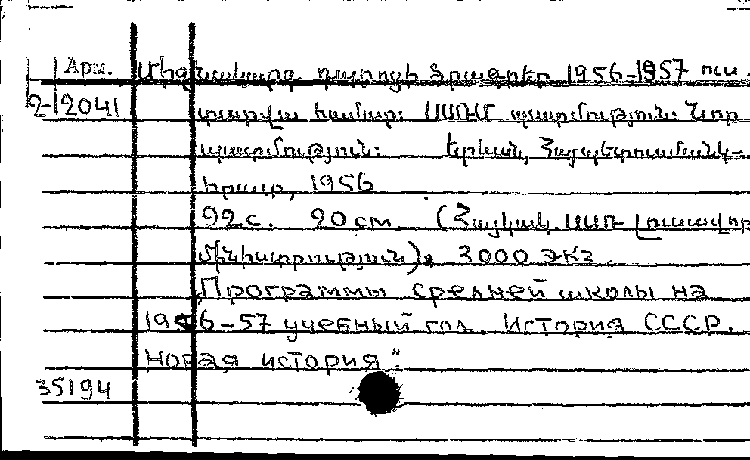 Арм. Միջնակարգ դպրոցի ծրագրեր 1956-1957 ուս.
2-12041 տարվա համար: ՍՍՌՄ պատմություն: Նոր
պատմություն: Երևան, Հայպետուսմանկ-
հրատ, 1956
92 с. 20 см. (Հայկակ. ՍՍՌ Լուսավոր
մինիստրություն): 3000 экз.
Программы средней школы на
1956-57 учебный год. История СССР.
Новая история"
35194